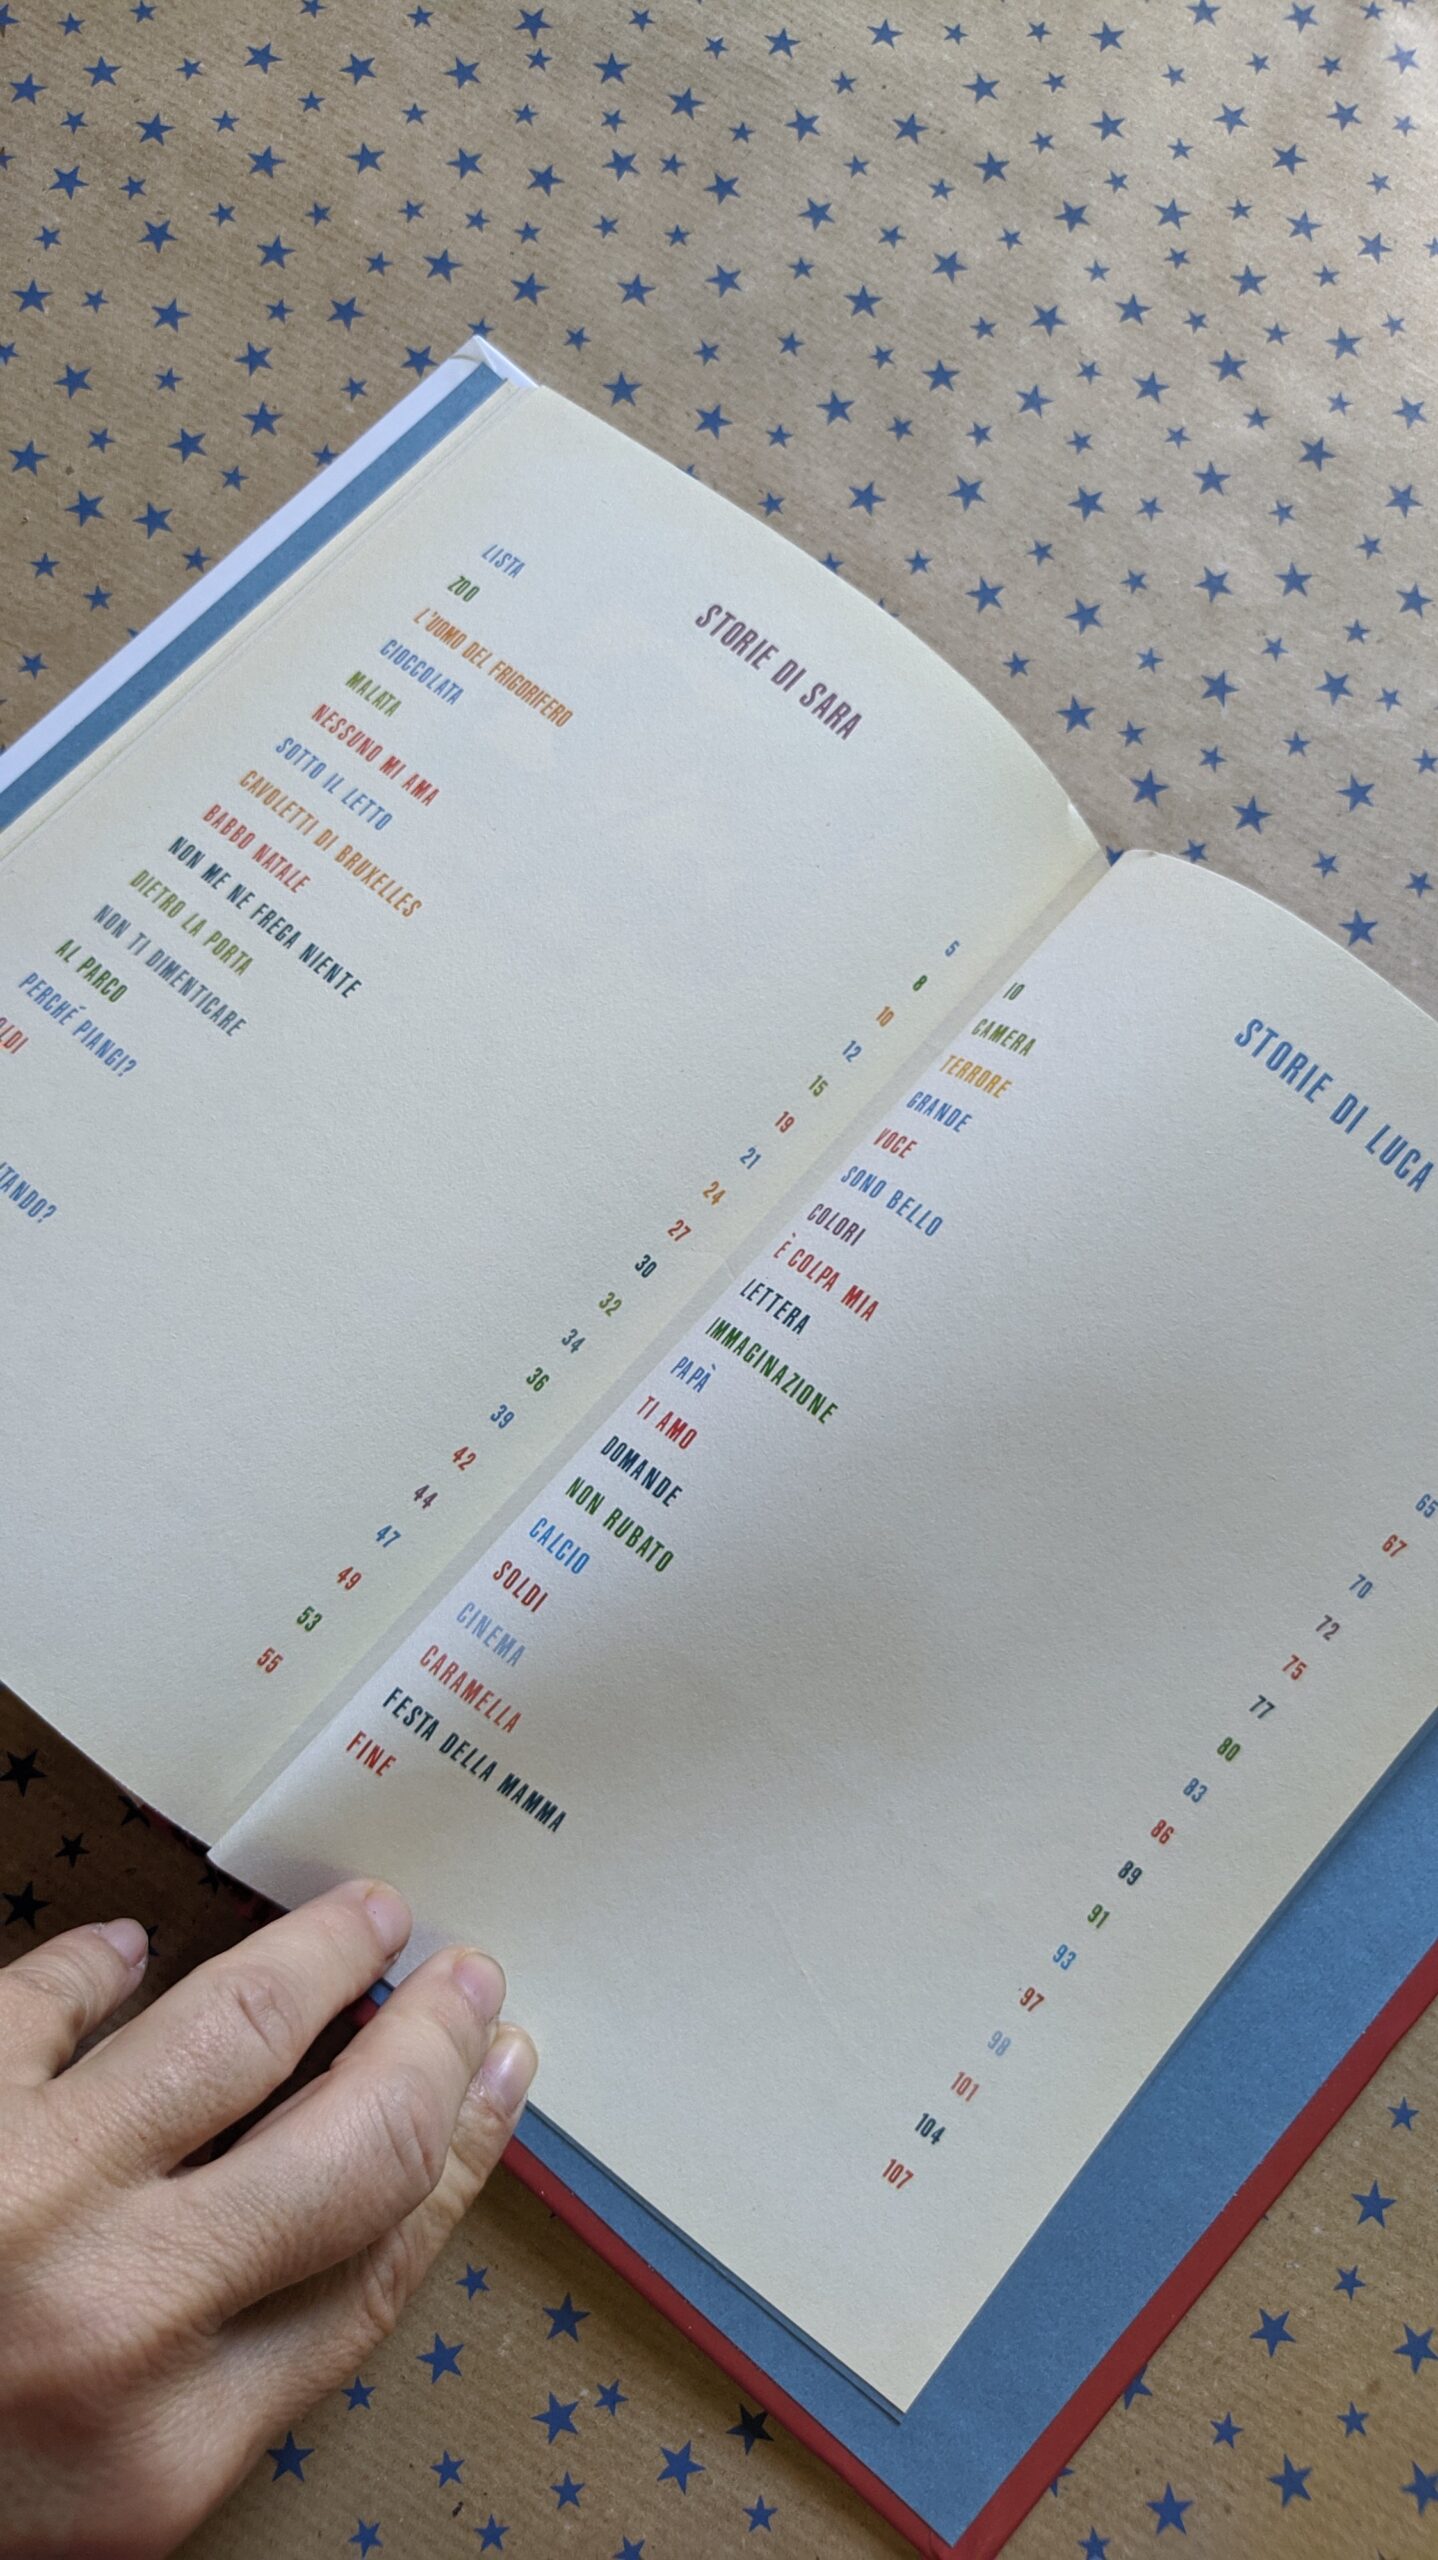 STORIE DI SARA
LISTA 5
ZOO 8
L'UOMO DEL FRIGORIFERO 10
CIOCCOLATA 12
MALATA 15
NESSUNO MI AMA 19
SOTTO IL LETTO 21
CAVOLETTI DI BRUXELLES 24
BABBO NATALE 27
NON ME NE FREGA NIENTE 30
DIETRO LA PORTA 32
NON TI DIMENTICARE 34
AL PARCO 36
PERCHÉ PIANGI? 39
42
44
47
49
53
55
STORIE DI LUCA
IO
CAMERA
TERRORE
GRANDE 65
VOCE 67
SONO BELLO 70
COLORI 72
È COLPA MIA 75
LETTERA 77
IMMAGINAZIONE 80
PAPÀ 83
TI AMO 86
DOMANDE 89
NON RUBATO 91
CALCIO 93
SOLDI 97
CINEMA 98
CARAMELLA 101
FESTA DELLA MAMMA 104
FINE 107